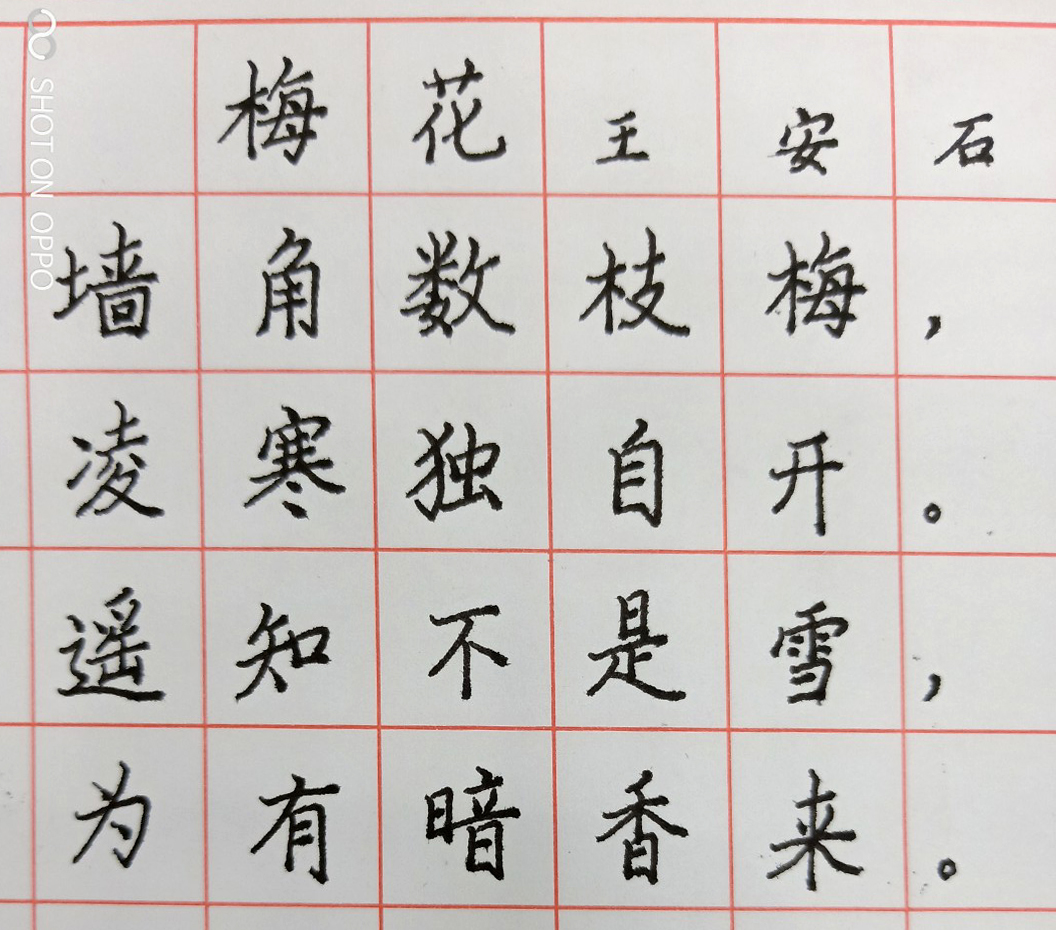 梅花 王安石
墙角数枝梅，
凌寒独自开。
遥知不是雪，
为有暗香来。
SHOT ON OPPO